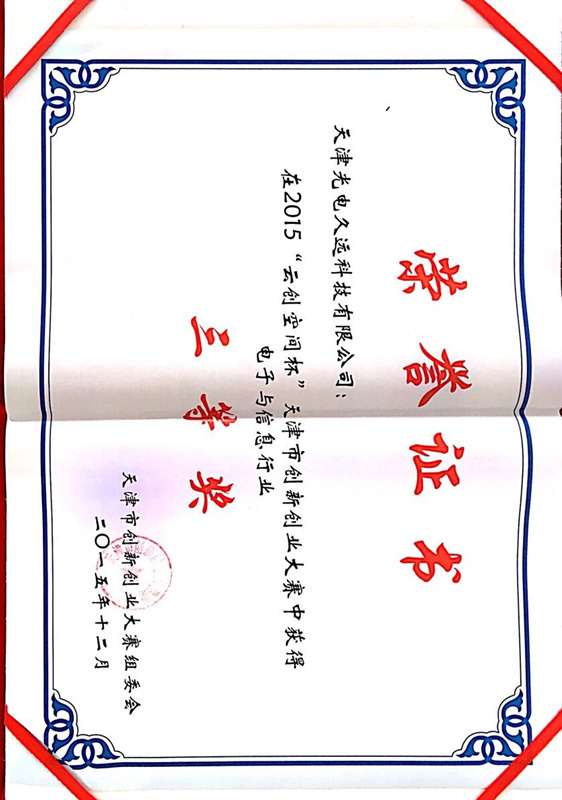 荣誉证书
天津光电久远科技有限公司：
在2015“云创空间杯”天津市创新创业大赛中获得
电子与信息行业
三等奖
天津市创新创业大赛组委会
二〇一五年十二月